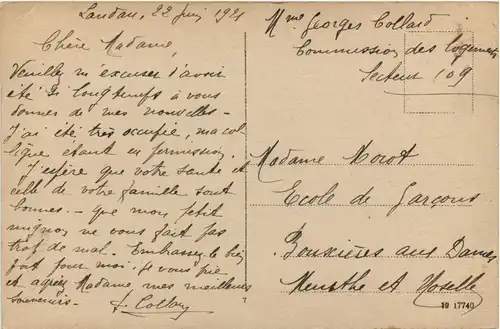 Landau, 22 juin 1921
Chère Madame,
Veuillez m'excuser d'avoir
été si longtemps à vous
donner de mes nouvelles -
J'ai été très occupée, ma col-
lègue étant en permission.
J'espère que votre santé et
celle de votre famille sont
bonnes - que mon petit
mignon ne vous fait pas
trop de mal. Embrassez le bien
fort pour moi. A vous que
et agréez Madame, mes meilleurs
souvenirs - Collard
Mme Georges Collard
Commission des logements
Secteur 109
Madame Morot
Ecole de Garçons
Bouxières aux Dames
Meurthe et Moselle
19 17740